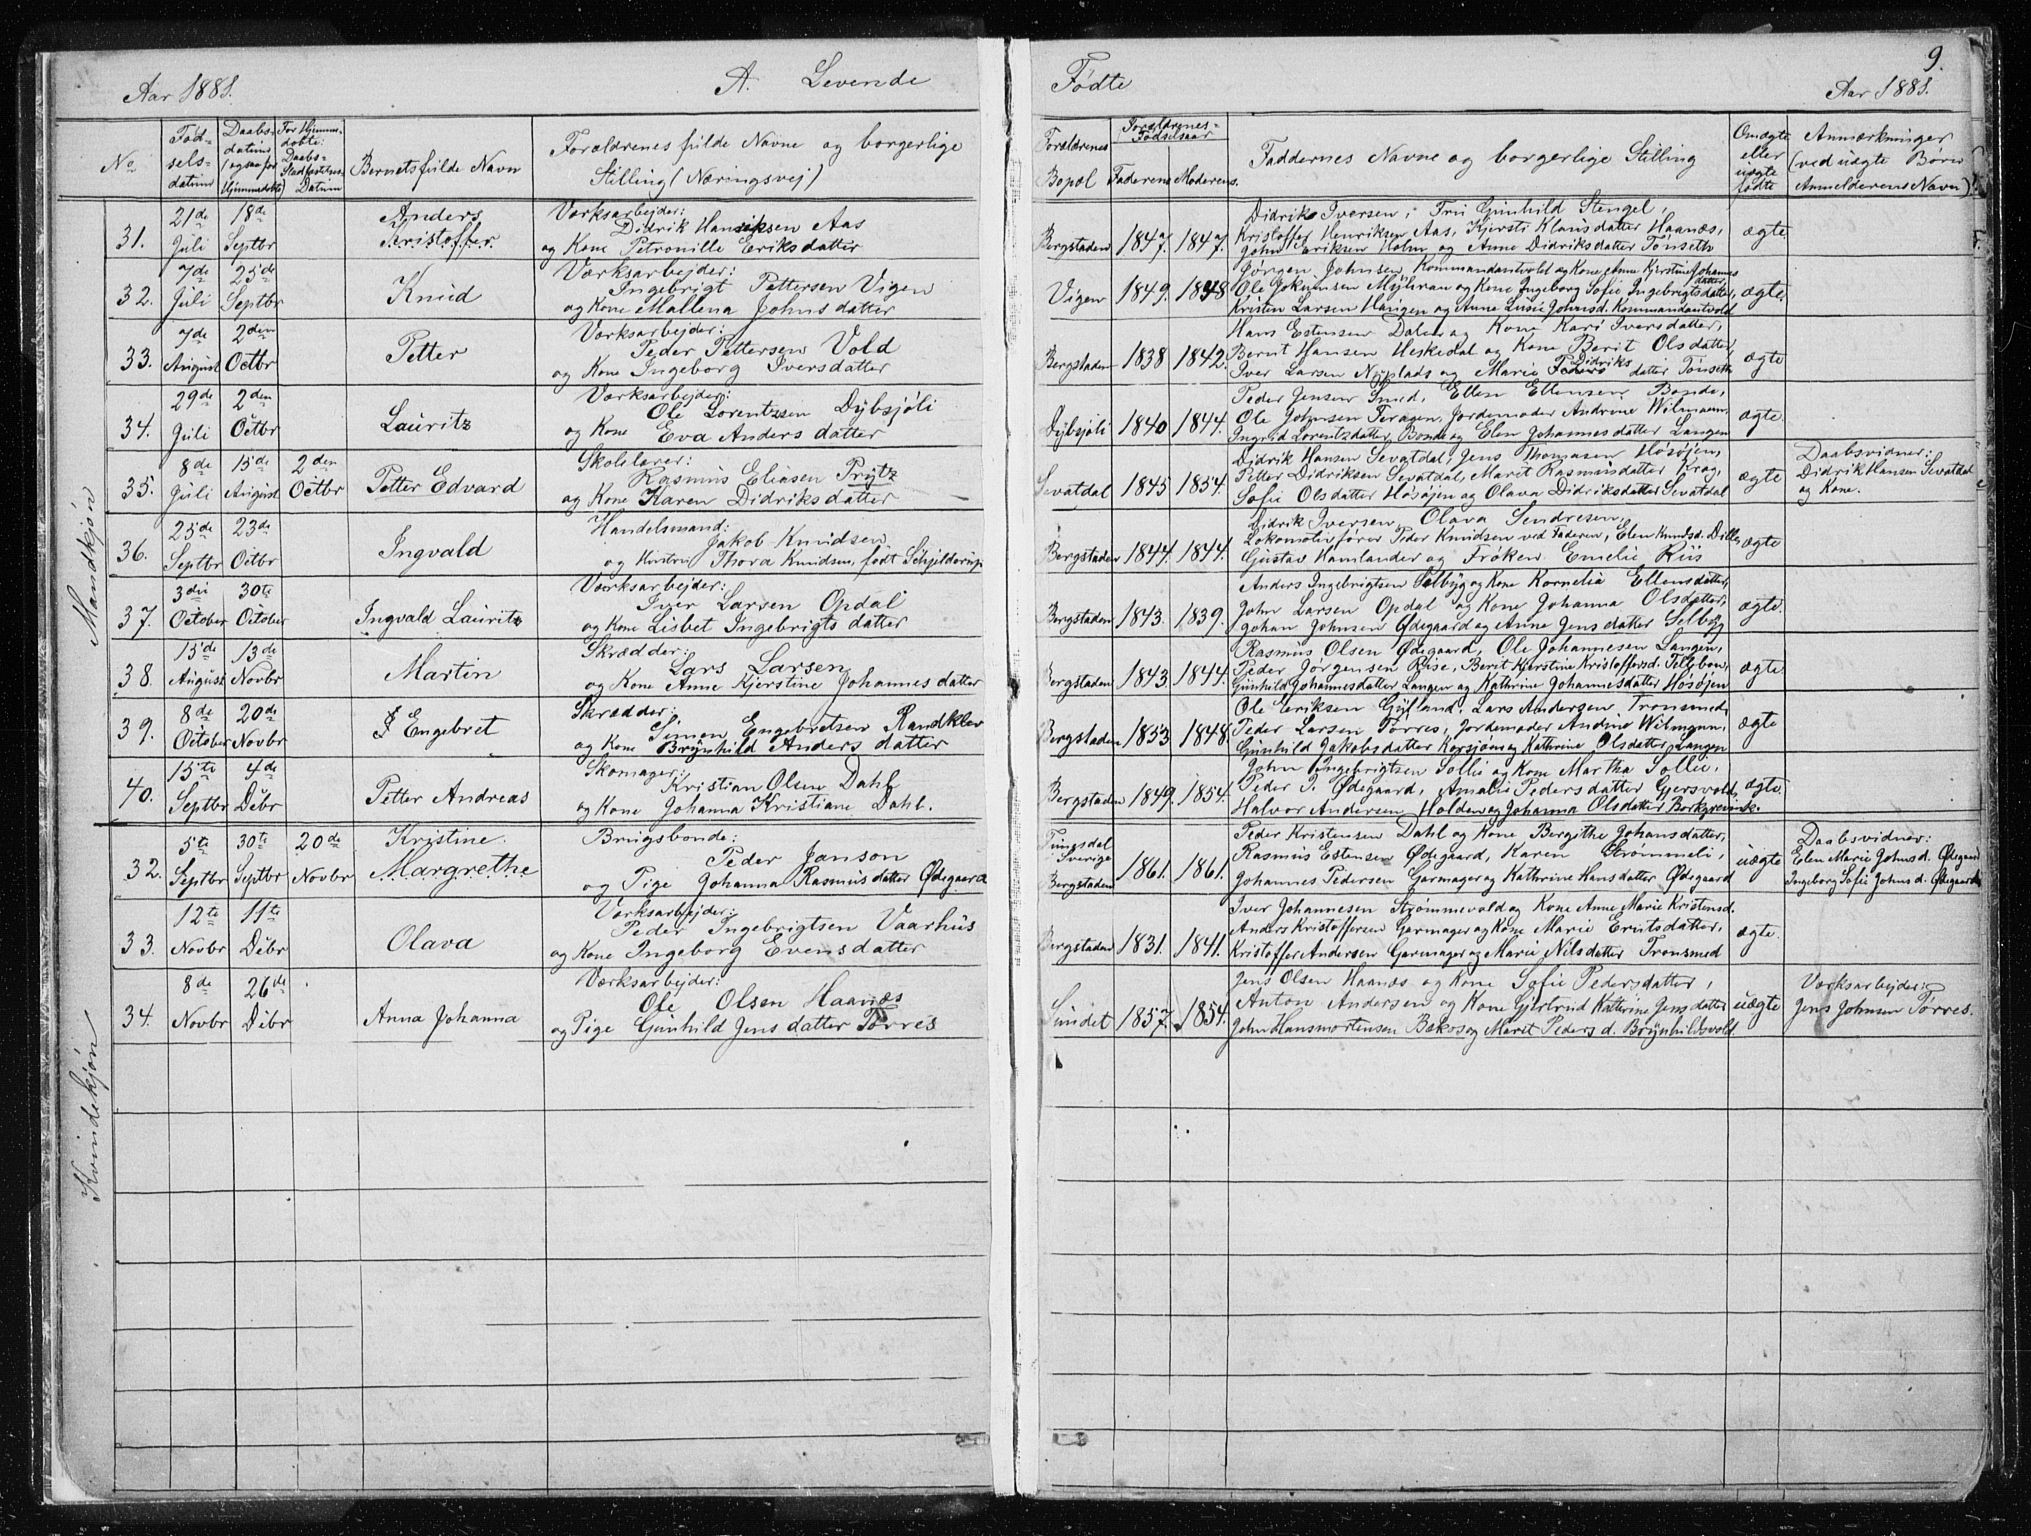 9.
Aar 1881. A. Levende Fødte Aar 1881.
No Fødselsdatum Daabsdatum (ogsaa for Hjemmedøbte) For Hjemmedøbte: Daabs-Stadfæstelses Datum Barnets fulde Navn Forældrenes fulde Navne og borgerlige Stilling (Næringsvej) Forældrenes Bopæl Forældrenes Fødselsaar Faderens Moderens Faddernes Navne og borgerlige Stilling Om ægte eller uægte fødte Anmærkninger (ved uægte Børn Anmelderens Navn).
Mandkjøn
31. 21de Juli 18de Septbr Anders Kristoffer.
Værksarbejder:
Didrik Hansen Aas
og Kone Petronille Eriksdatter
Bergstaden 1847. 1847.
Didrik Iversen, Fru Gunhild Stengel,
Kristoffer Henriksen Aas, Kjersti Klausdatter Haanæs,
John Eriksen Holm og Anne Didriksdatter Tønseth
ægte
32. 7de Juli 25de Septbr Knud
Værksarbejder:
Ingebrigt Pettersen Vigen
og Kone Mallena Johnsdatter
Vigen 1849. 1848
Jørgen Johnsen Kommandantvold og Kone Anne Kjerstine Johannesdatter
Ole Jokumsen Myhran og Kone Ingeborg Sofie Ingebrigtsdatter,
Kristen Larsen Haugen og Anne Lusie Johnsd. Kommandantvold
ægte
33. 7de August 2den Octbr Petter
Værksarbejder:
Peder Pettersen Vold
og Kone Ingeborg Iversdatter
Bergstaden 1838 1842.
Hans Estensen Dalen og Kone Kari Iversdatter,
Bernt Hansen Heskedal og Kone Berit Olsdatter,
Iver Larsen Nyplads og Marie Didriksdatter Tønseth
ægte
34. 29de Juli 2den Octbr Lauritz
Værksarbejder:
Ole Lorentzsen Dybsjøli
og Kone Eva Andersdatter
Dybsjøli 1840 1844.
Peder Jensen Smed, Ellen Ellensen Bonde,
Ole Johnsen Feragen, Jordemoder Andrine Wilmann,
Ingrid Lorentzdatter Bonde og Elen Johannesdatter Langen
ægte.
35. 8de Juli 15de August 2den Octbr Petter Edvard
Skolelærer:
Rasmus Eliasen Prytz
og Kone Karen Didriksdatter
Sevatdal 1845 1854.
Didrik Hansen Sevatdal, Jens Thomasen Høsøjen,
Petter Didriksen Sevatdal, Marit Rasmusdatter Krag,
Sofie Olsdatter Høsøjen og Olava Didriksdatter Sevatdal
ægte
Daabsvidner:
Didrik Hansen Sevatdal
og Kone.
36. 25de Septbr 23de Octbr Ingvald
Handelsmand:
Jakob Knudsen
og Hustru Thora Knudsen, født Schjelderup
Bergstaden 1844. 1844.
Didrik Iversen, Olava Sendresen,
Lokomotivfører Peder Knudsen ved Faderen, Elen Knudsd. Dille
Gustav Hamlander og Frøken Emelie Riis
ægte
37. 3die October 30te October Ingvald Lauritz
Værksarbejder:
Iver Larsen Opdal
og Kone Lisbet Ingebrigtsdatter
Bergstaden 1843. 1839.
Anders Ingebrigtsen Selbyg og Kone Kornelia Ellensdatter,
John Larsen Opdal og Kone Johanna Olsdatter,
Johan Johnsen Ødegaard og Anne Jensdatter Selbyg
ægte.
38. 15de August 13de Novbr Martin
Skrædder:
Lars Larsen
og Kone Anne Kjerstine Johannesdatter
Bergstaden 1843. 1844.
Rasmus Olsen Ødegaard, Ole Johannesen Langen,
Peder Jørgensen Riise, Berit Kjerstine Kristoffersd. Tellebon,
Gunhild Johannesdatter Langen og Kathrine Johannesdatter Høsøjen
ægte
39. 8de October 20de Novbr Engebret
Skrædder:
Simen Engebretsen Randklev
og Kone Brynhild Andersdatter
Bergstaden 1853 1848.
Ole Eriksen Gylland, Lars Andersen Tronsmed,
Peder Larsen Torres, Jordemoder Andine Wilmann,
Gunhild Jakobsdatter Korsjøen og Kathrine Olsdatter Langen
ægte
40. 15te Septbr 4de Debr Petter Andreas
Skomager:
Kristian Olsen Dahl
og Kone Johanna Kristiane Dahl.
Bergstaden 1849. 1854.
John Ingebrigtsen Sollie og Kone Martha Sollie,
Peder J. Ødegaard, Amalie Pedersdatter Gjersvold,
Halvor Andersen Holden og Johanna Olsdatter Borkgrevink.
ægte.
Kvindekjøn
32. 5te Septbr 30te Septbr 20de Novbr Kristine Margrethe
Brugsbonde:
Peder Janson
og Pige Johanna Rasmusdatter Ødegaard
Funesdal i Sverige Bergstaden 1861. 1861.
Peder Kristensen Dahl og Kone Bergithe Johansdatter,
Rasmus Estensen Ødegaard, Karen Strømmeli,
Johannes Pedersen Garmager og Kathrine Hansdatter Ødegaard
uægte
Daabsvidner:
Elen Marie Johnsd. Ødegaard
Ingeborg Sofie Johnsd. Ødegaard
33. 12te Novbr 11te Debr Olava
Værksarbejder:
Peder Ingebrigtsen Vaarhus
og Kone Ingeborg Evensdatter
Bergstaden 1831. 1841.
Iver Johannesen Strømmevold og Kone Anne Marie Kristensd.
Anders Kristoffersen Garmager og Kone Marie Erutsdatter,
Kristoffer Andersen Garmager og Marie Nilsdatter Tronsmed
ægte.
34. 8de Novbr 26de Debr Anna Johanna
Værksarbejder:
Ole Olsen Haanæs
og Pige Gunhild Jensdatter Tørres
Sundet 1857. 1854.
Jens Olsen Haanæs og Kone Sofie Pedersdatter,
Anton Andersen og Kone Gjertrud Kathrine Jensdatter
John Hansmortensen Bekos og Marit Pedersd. Brynhildsvold.
uægte
Værksarbejder:
Jens Johnsen Tørres.